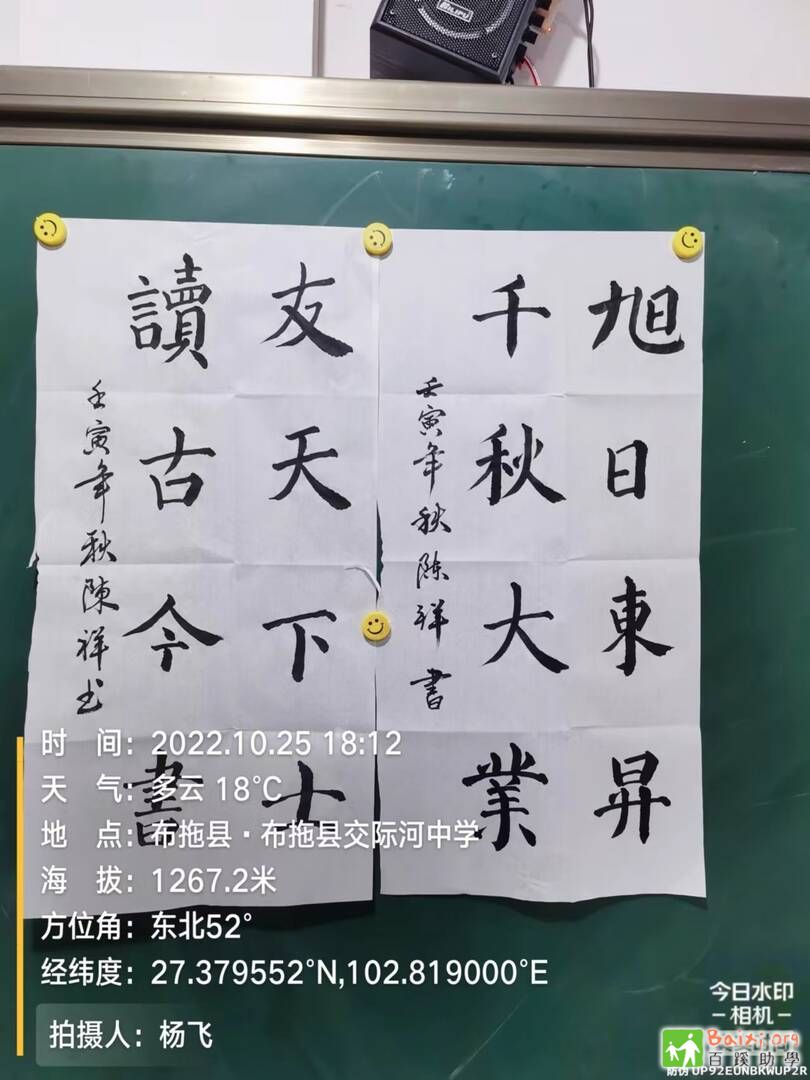 BILIPU
旭日東昇
千秋大業
壬寅年秋陈祥書
友天下士
讀古今書
壬寅年秋陳祥书
时 间：2022.10.25 18:12
天 气：多云 18℃
地 点：布拖县·布拖县交际河中学
海 拔：1267.2米
方位角：东北52°
经纬度：27.379552°N,102.819000°E
拍摄人：杨飞
今日水印
-相机-
Baixi.org
百蹊助學
防伪 UP92EUNBKWUP2R